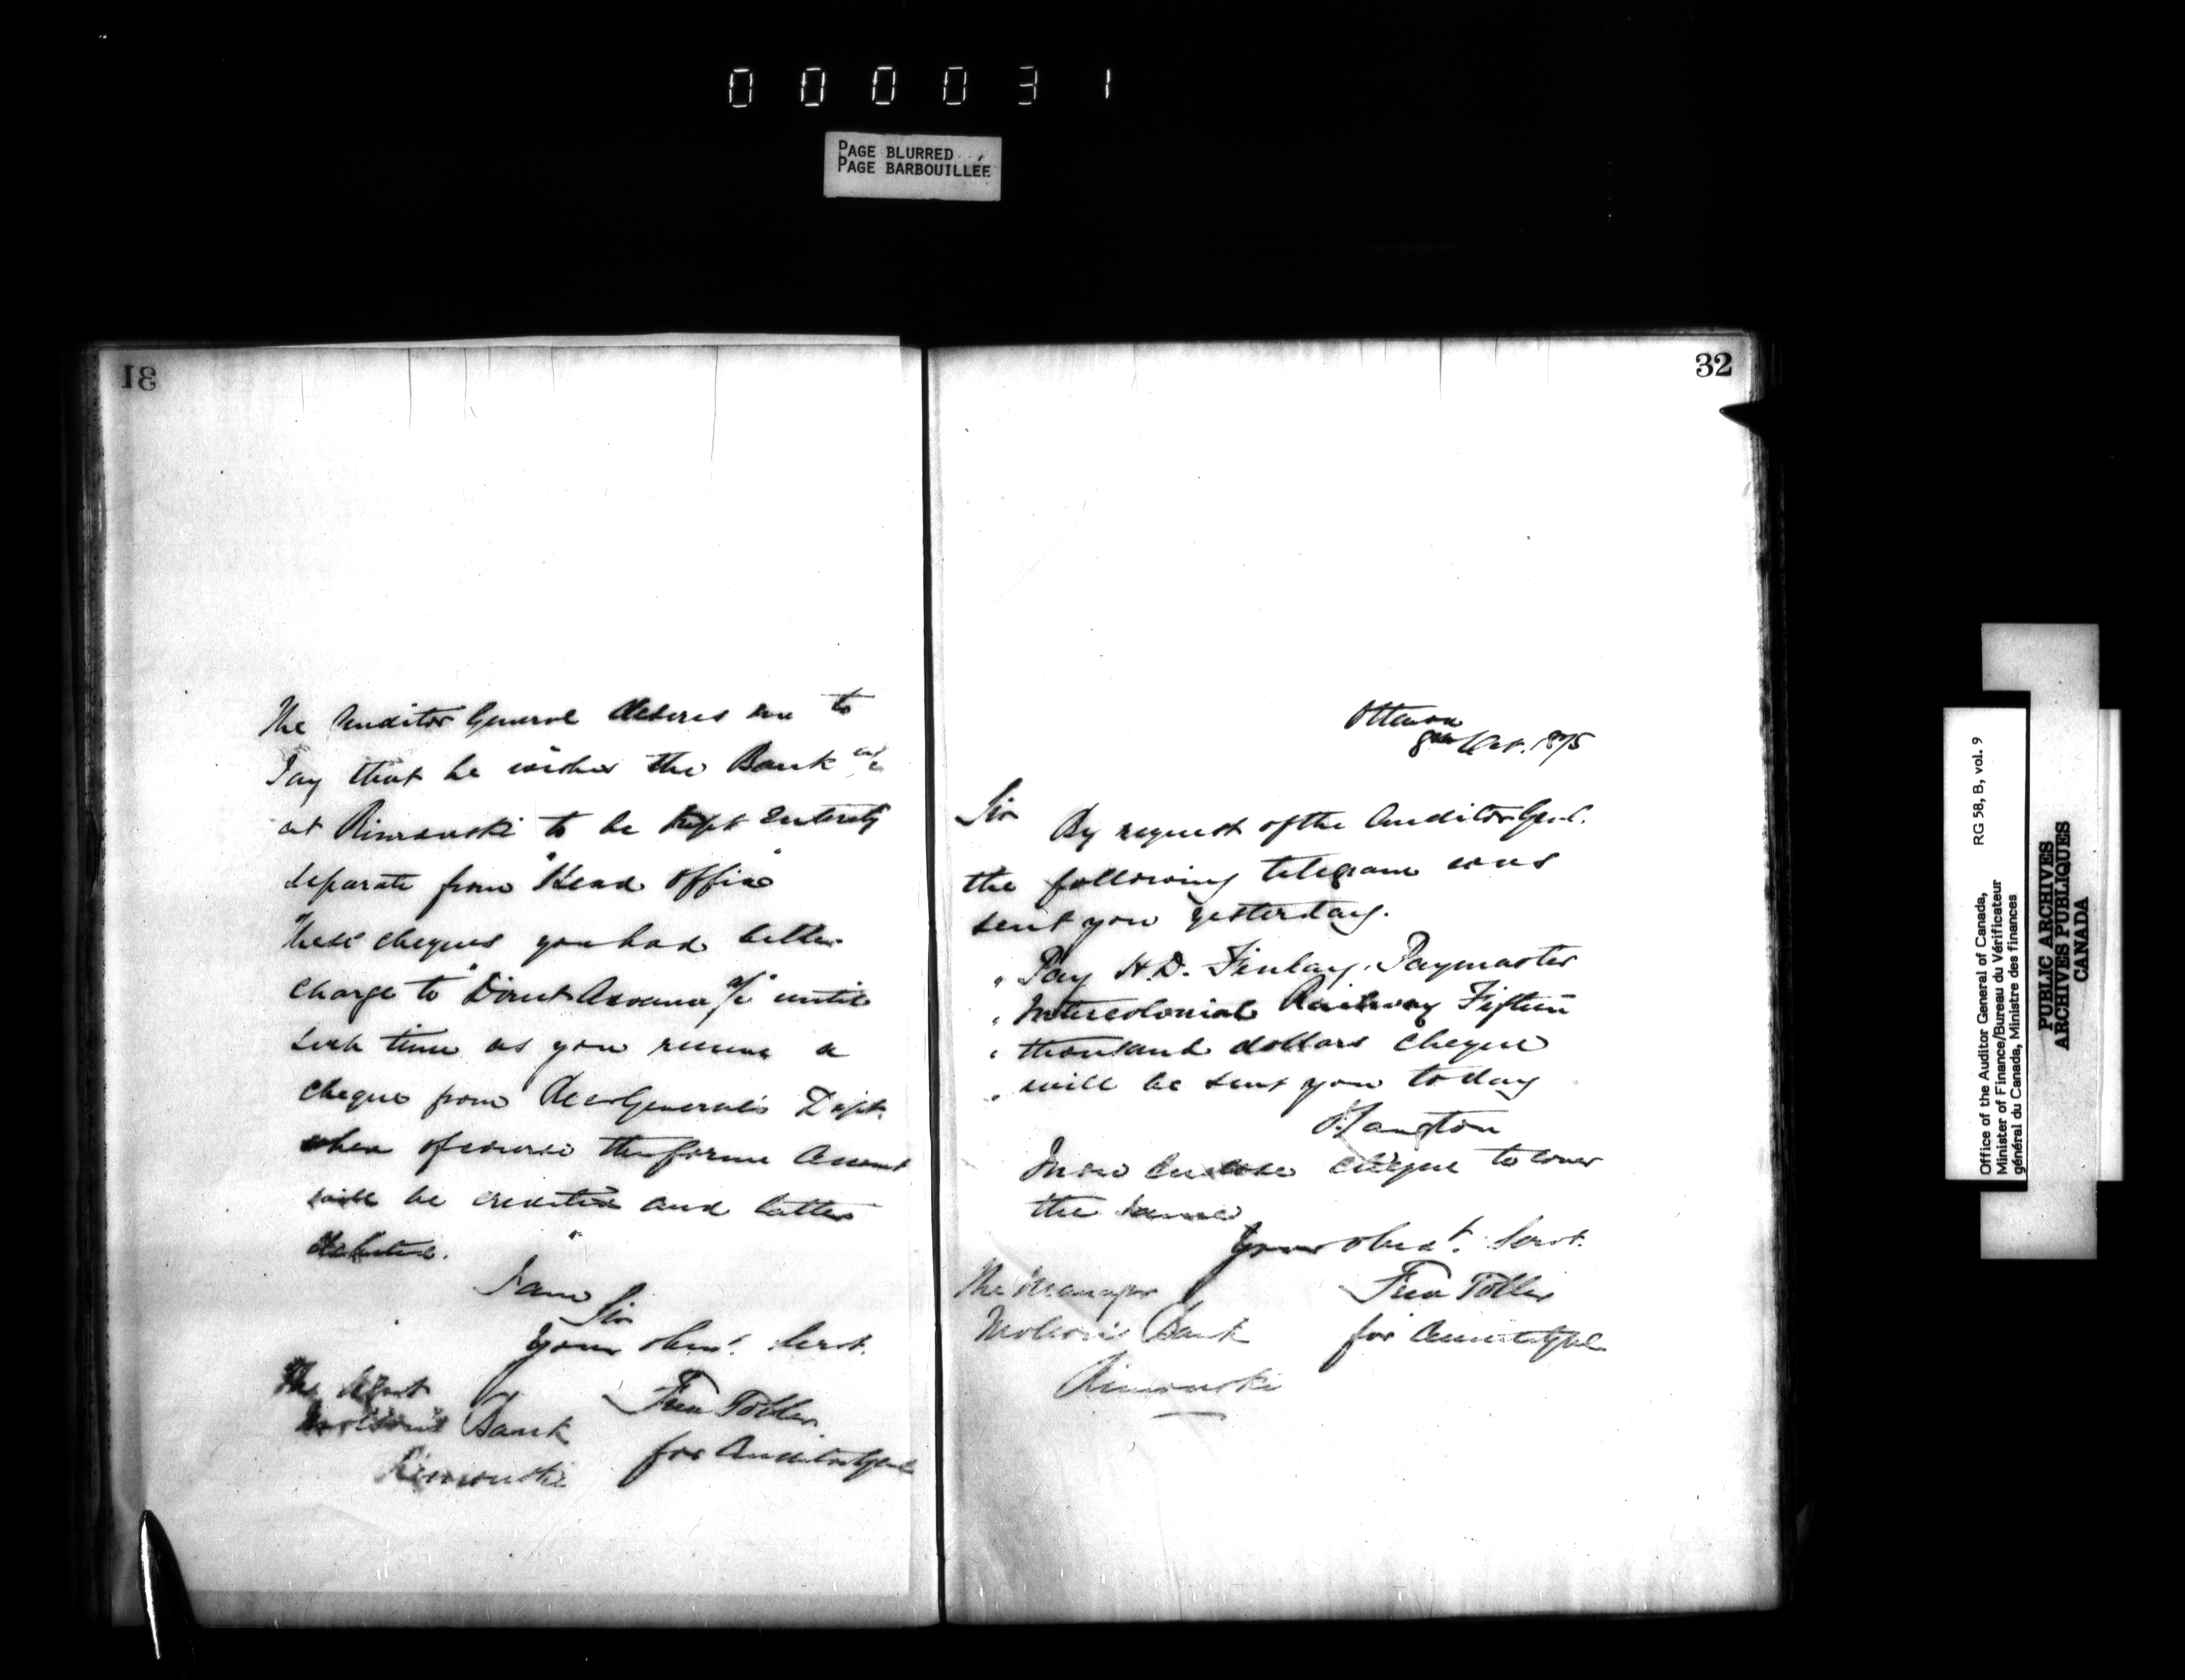 000031
PAGE BLURRED
PAGE BARBOUILLÉE
31
The Auditor General desires me to
say that he wishes the Bank a/c
at Rimouski to be kept Entirely
separate from "Head Office"
These cheques you had better
charge to "Direct Advance a/c" until
such time as you receive a
cheque from Recr General's Dept.
when of course the former Account
will be credited and latter
debited.
I am
Sir
Your Obnt. Servt.
Fred Toller
for Auditor Genl
The Agent
Molson's Bank
Rimouski
32
Ottawa
8th Oct. 1875
Sir
By request of the Auditor Genl.
the following telegram was
sent you yesterday.
" Pay H.D. Finlay, Paymaster
" Intercolonial Railway Fifteen
" thousand dollars Cheque
" will be sent you today
J. Langton
I now enclose cheque to cover
the same
Your Obedt. Servt.
Fred Toller
for Auditor Genl
The Manager
Molson's Bank
Rimouski
Office of the Auditor General of Canada, RG 58, B, vol. 9
Minister of Finance/Bureau du Vérificateur
général du Canada, Ministre des finances
PUBLIC ARCHIVES
ARCHIVES PUBLIQUES
CANADA